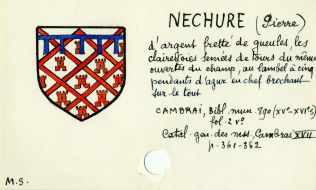 NECHURE (Pierre)
d'argent fretté de gueules, les
clairevoies semées de tours du même
ouvertes du champ, au lambel à cinq
pendants d'azur en chef brochant
sur le tout
CAMBRAI, Bibl. mun. 890 (XVe-XVIe s)
fol. 2 vo
Catal. gén. des mss, Cambrai XVII
p. 361-362
M.S.